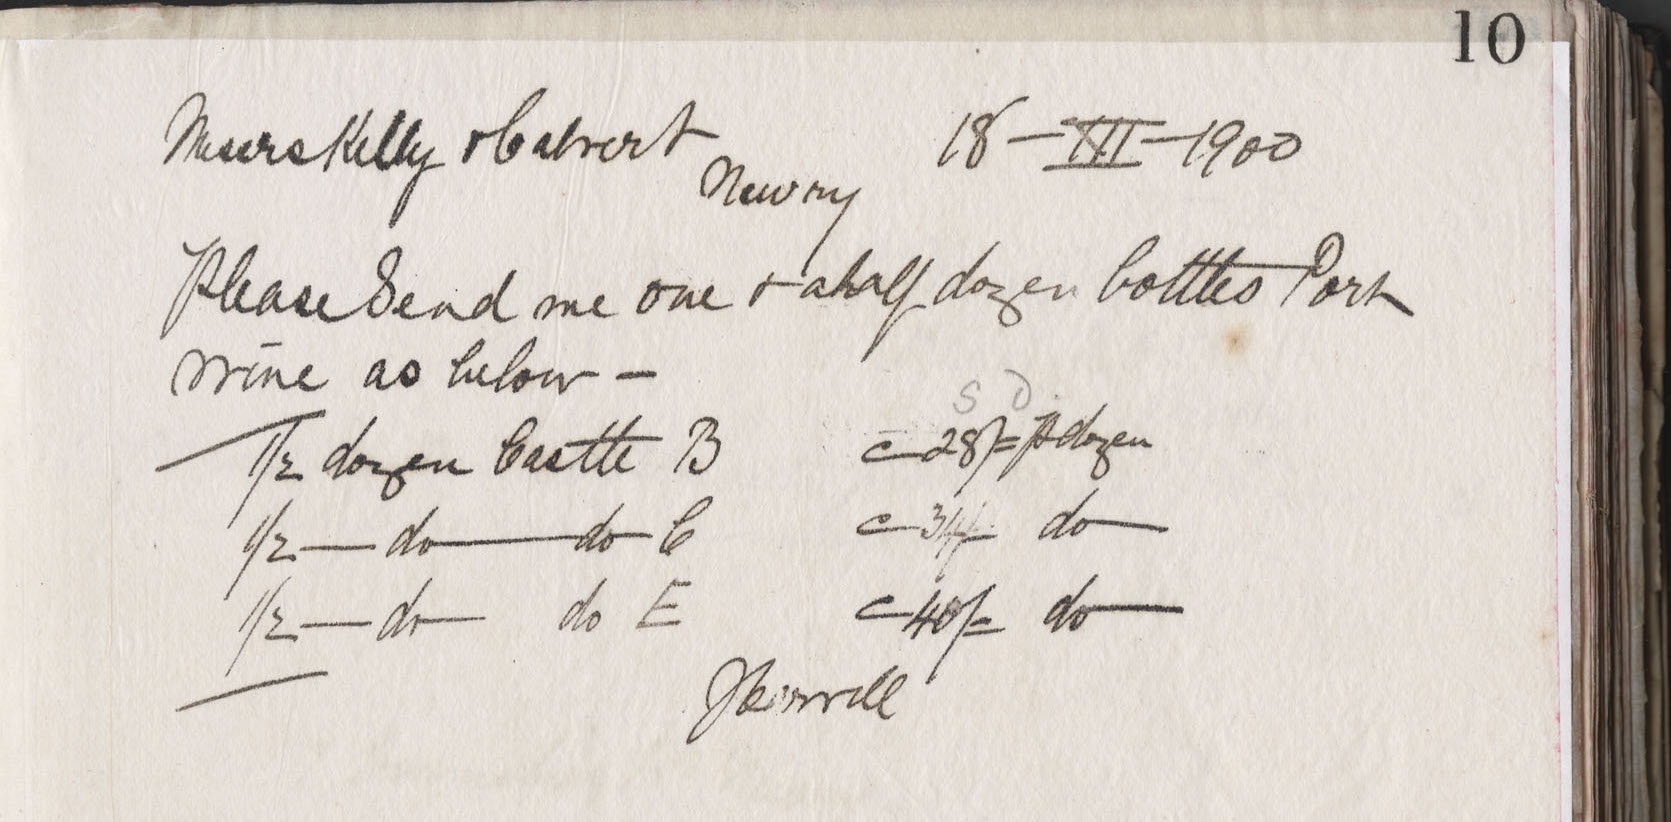 10
Messrs Kelly & Calvert 18-XII-1900
Newry
Please Send me one & a half dozen bottles Port
wine as below -
S D
1/2 dozen Castle B @ 28/= P dozen
1/2 - do - do - C @ 34/= do -
1/2 - do - do E @ 40/= do -